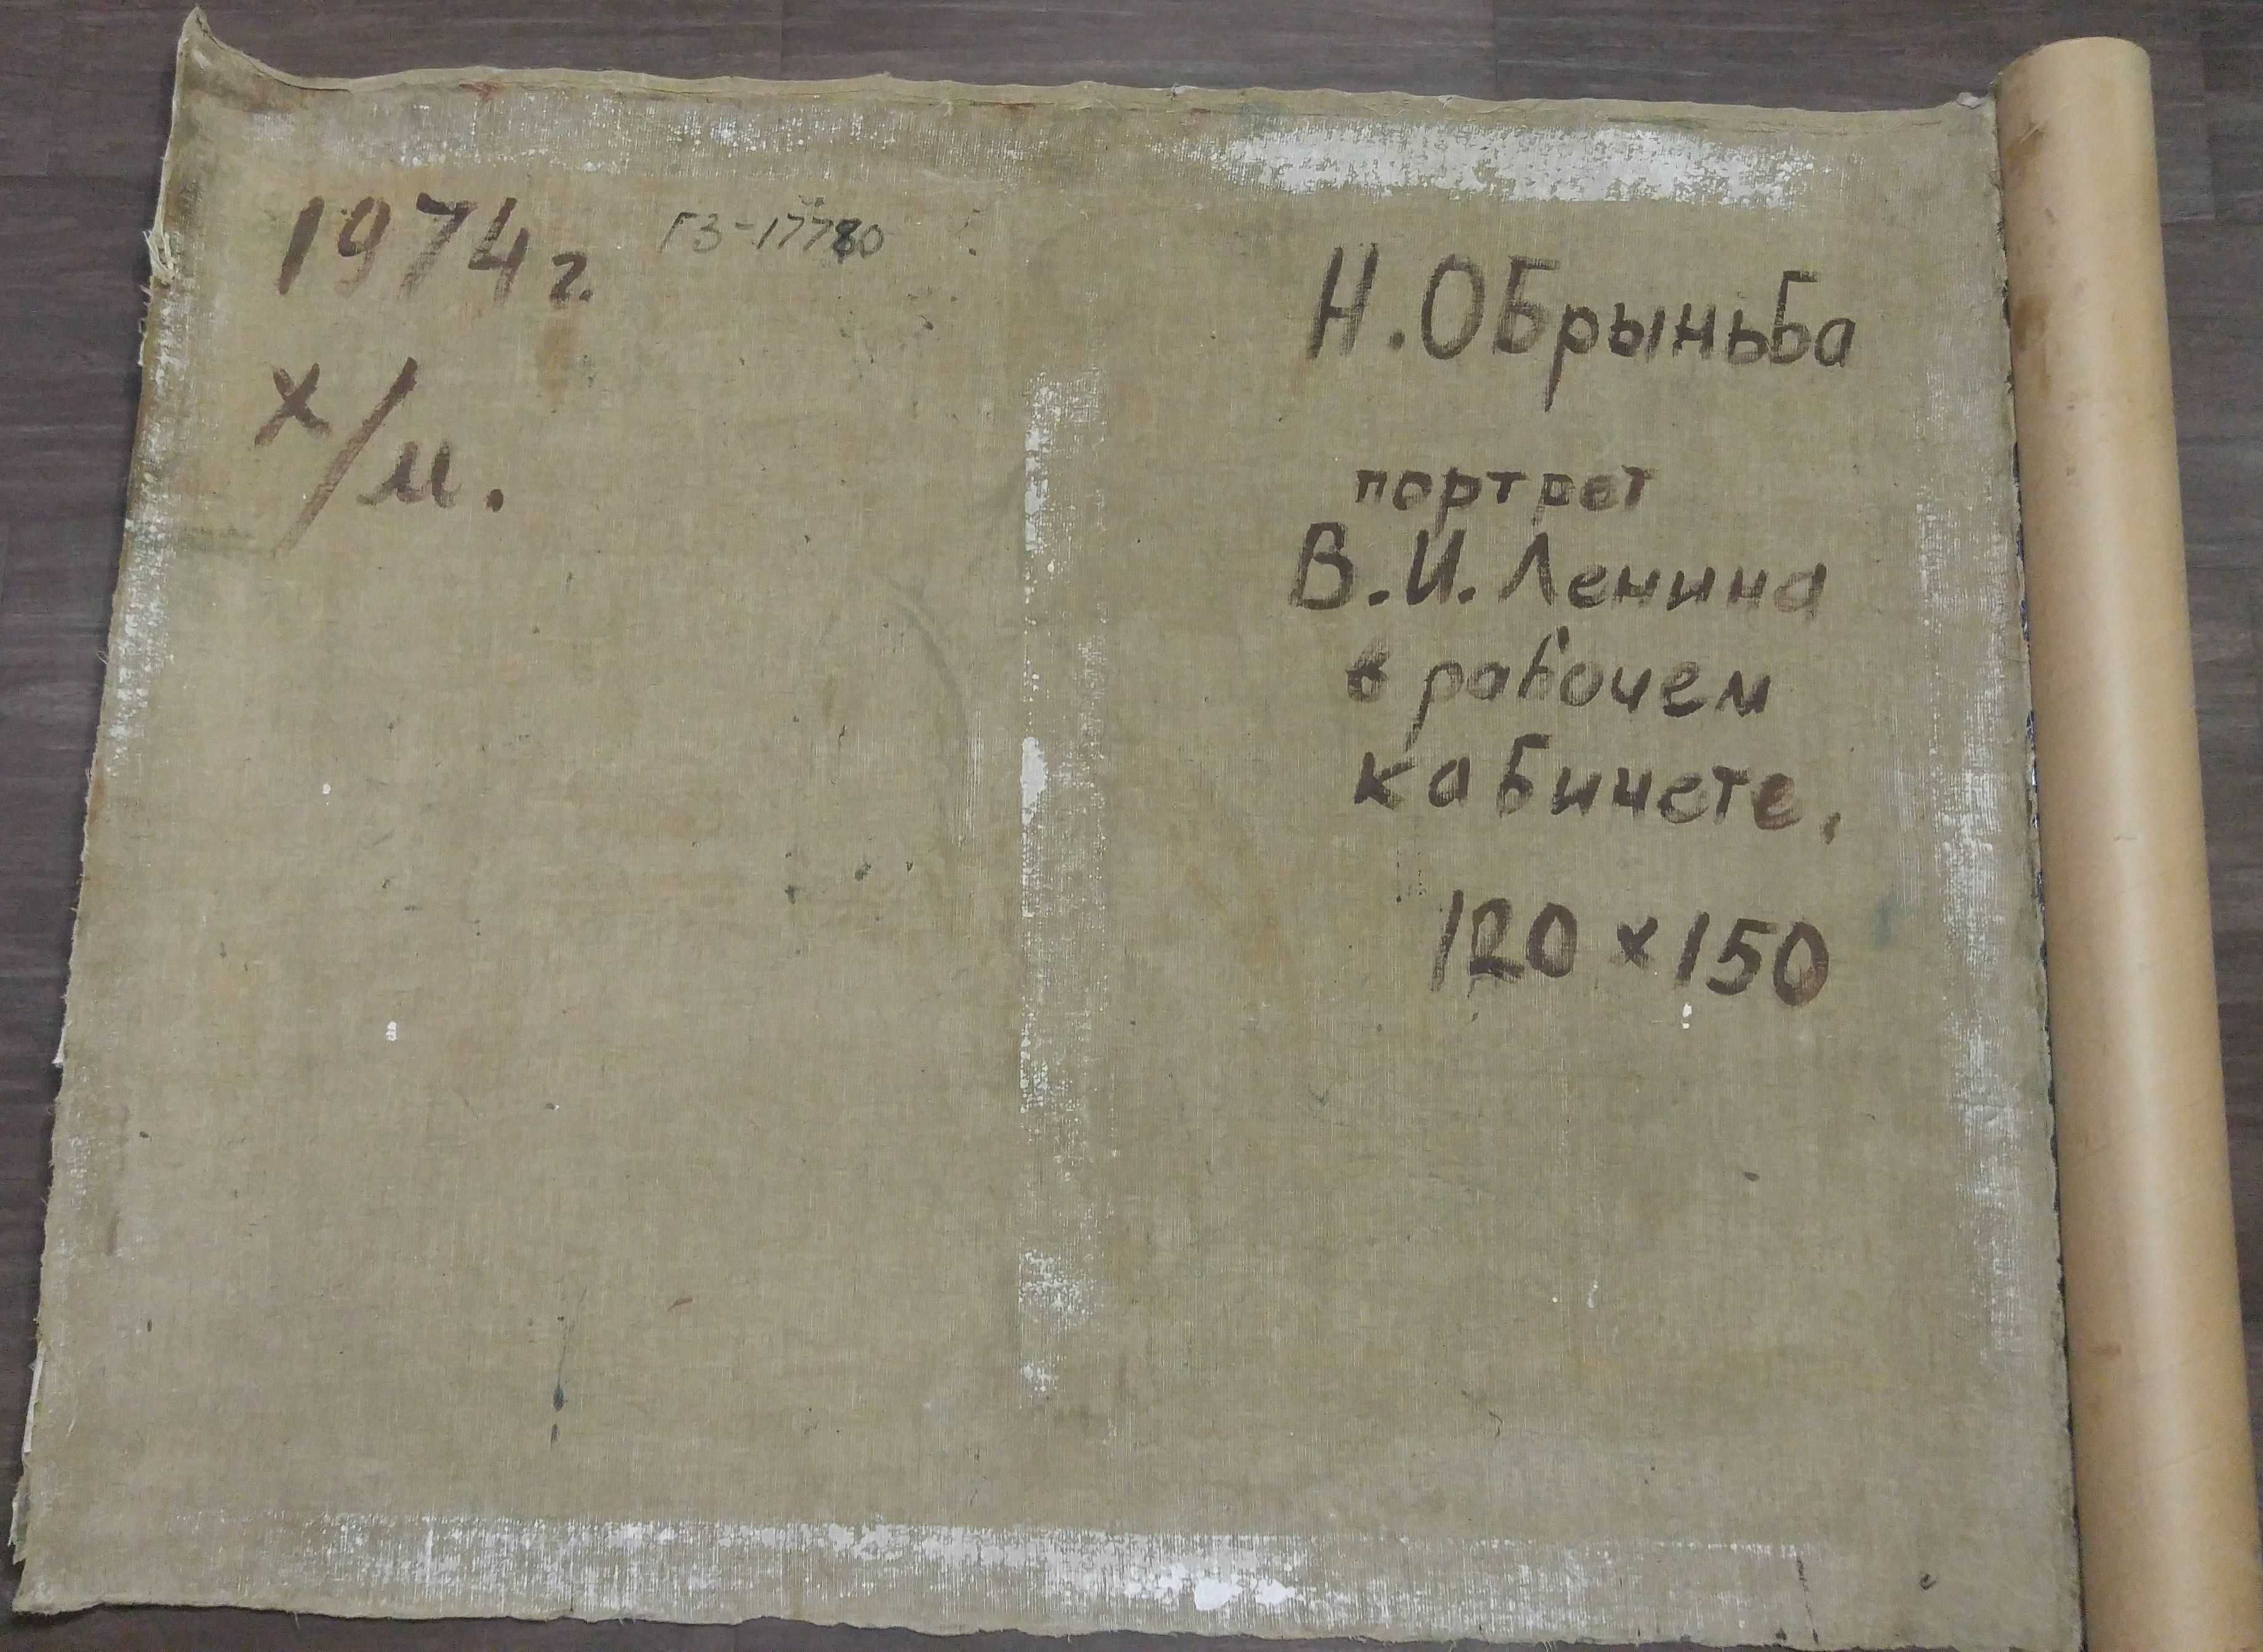 1974 г. ГЗ-17780
х/м.
Н. Обрыньба
портрет
В.И. Ленина
в рабочем
кабинете.
120 х 150